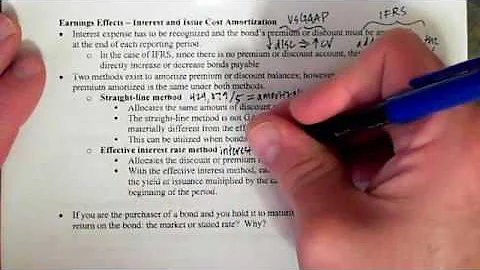 US GAAP IFRS
Earnings Effects – Interest and Issue Cost Amortization
• Interest expense has to be recognized and the bond's premium or discount must be
at the end of each reporting period. ↓ disc ⇒ ↑ CV
o In the case of IFRS, since there is no premium or discount account, the
directly increase or decrease bonds payable
• Two methods exist to amortize premium or discount balances; however
premium amortized is the same under both methods.
o Straight-line method /5 =
▪ Allocates the same amount of discount
▪ The straight-line method is not
materially different from the
▪ This can be utilized when bonds
o Effective interest rate method interest
▪ Allocates the discount or premium
▪ With the effective interest method,
the yield at issuance multiplied by the
beginning of the period.
• If you are the purchaser of a bond and you hold it to
return on the bond: the market or stated rate? Why?